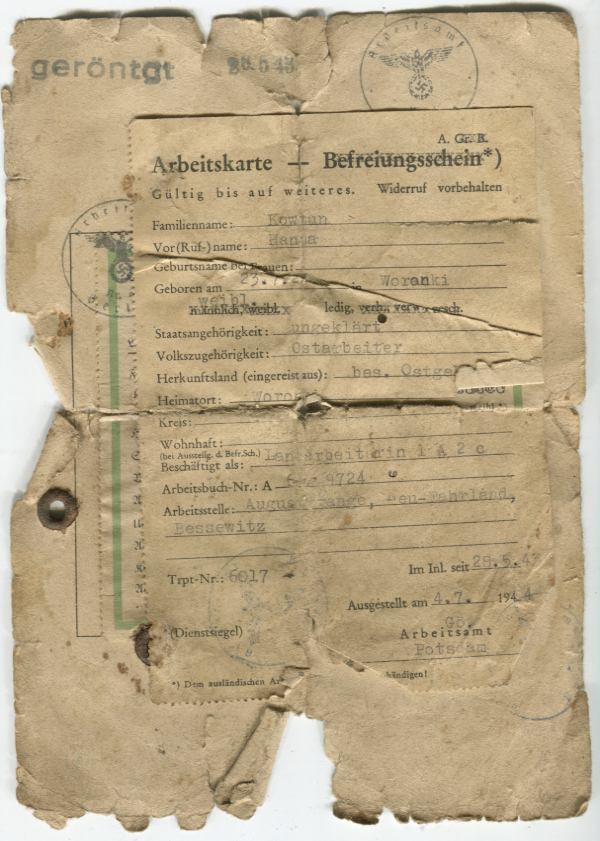 geröntgt
Arbeitsamt
A. Gr. B.
Arbeitskarte — Befreiungsschein*)
Gültig bis auf weiteres. Widerruf vorbehalten
Familienname: Kowtun
Vor(Ruf-)name: Hanna
Geburtsname bei Frauen:
Geboren am 23. in Woronki
weibl.
männlich, weibl. ledig, verh., verw., gesch.
Staatsangehörigkeit: ungeklärt
Volkszugehörigkeit: Ostarbeiter
Herkunftsland (eingereist aus): bes. Ostge
Heimatort: Woro
Kreis:
Wohnhaft:
(bei Ausstellg. d. Befr.Sch.)
Beschäftigt als: Landarbeiterin 1 A 2 c
Arbeitsbuch-Nr.: A 9724
Arbeitsstelle: August Lange, Neu-Fahrland,
Bessewitz
Trpt-Nr.: 6017
Im Inl. seit 28.5.43
Ausgestellt am 4.7. 1944
Gö.
(Dienstsiegel)
Arbeitsamt
Potsdam
*) Dem ausländischen Ar händigen!